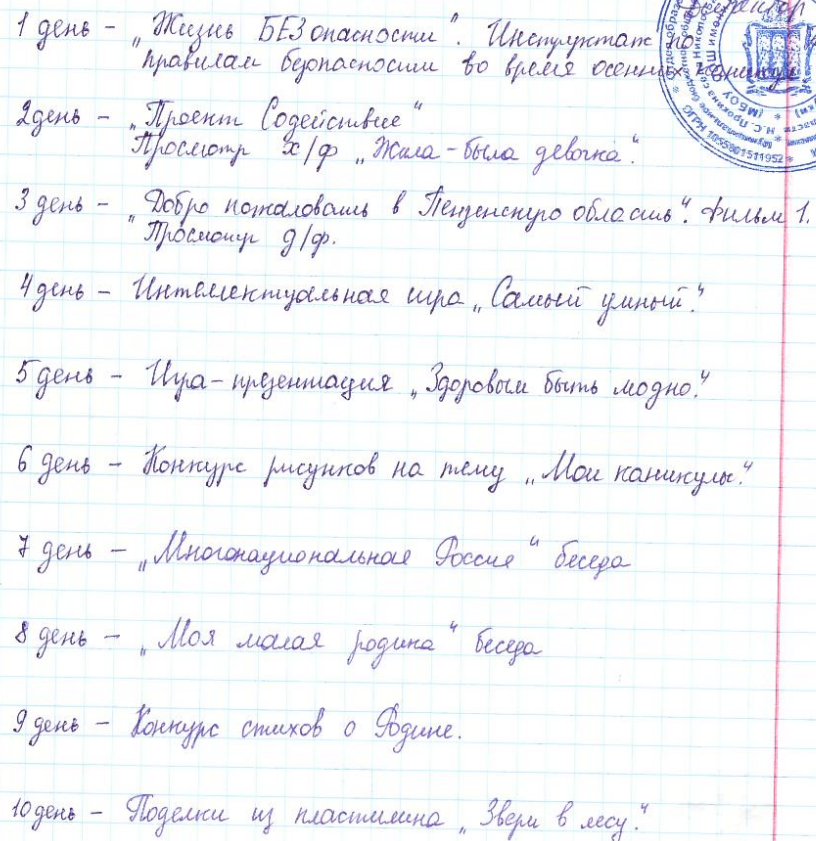 Директор
1 день – „Жизнь БЕЗ опасности". Инструктаж по
правилам безопасности во время осенних каникул
2 день – „Проект Содействие"
Просмотр х/ф „Жила-была девочка".
3 день – „Добро пожаловать в Пензенскую область". Фильм 1.
Просмотр д/ф.
4 день – Интеллектуальная игра „Самый умный".
5 день – Игра-презентация „Здоровым быть модно".
6 день – Конкурс рисунков на тему „Мои каникулы".
7 день – „Многонациональная Россия" беседа
8 день – „Моя малая родина" беседа
9 день – Конкурс стихов о Родине.
10 день – Поделки из пластилина „Звери в лесу".
1055801511952